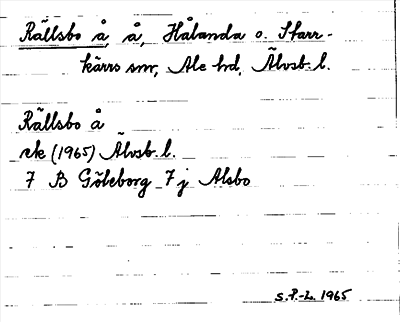 Rällsbo å, å, Hålanda o. Starr-
kärrs snr, Ale hd, Älvsb. l.
Rällsbo å
rk (1965) Älvsb. l.
7 B Göteborg 7 j Alsbo
S.P.-L. 1965